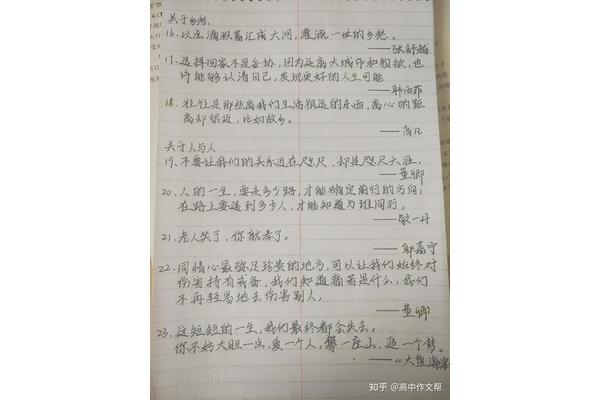 关于乡愁、
16. 以点滴积蓄汇成大河,灌溉一世的乡愁。
——张舒越
17. 选择回家不是妥协,因为远离大城市和物欲,也
许能够认清自己,发现更好的人生可能
——韩雨菲
18. 往往是那些离我们生活很远的东西,离心的距
离却很近,比如故乡。
——高凡
关于人与人
19. 不要让我们的关系近在咫尺,却是咫尺天涯。
——董卿
20. 人的一生,要走多少路,才能确定前行的方向;
在路上要遇到多少人,才能知道与谁同行。
——敬一丹
21. 老人笑了,你就孝了。
——郭嘉宁
22. 同情心最弥足珍贵的地方,可以让我们始终对
伤害持有戒备,我们知道痛苦是什么,我们
不再轻易地去伤害别人,
——董卿
23. 这短短的一生,我们最终都会失去,
你不妨大胆一点,爱一个人,攀一座山,追一个梦。
——《大鱼海棠
知乎 @高中作文帮